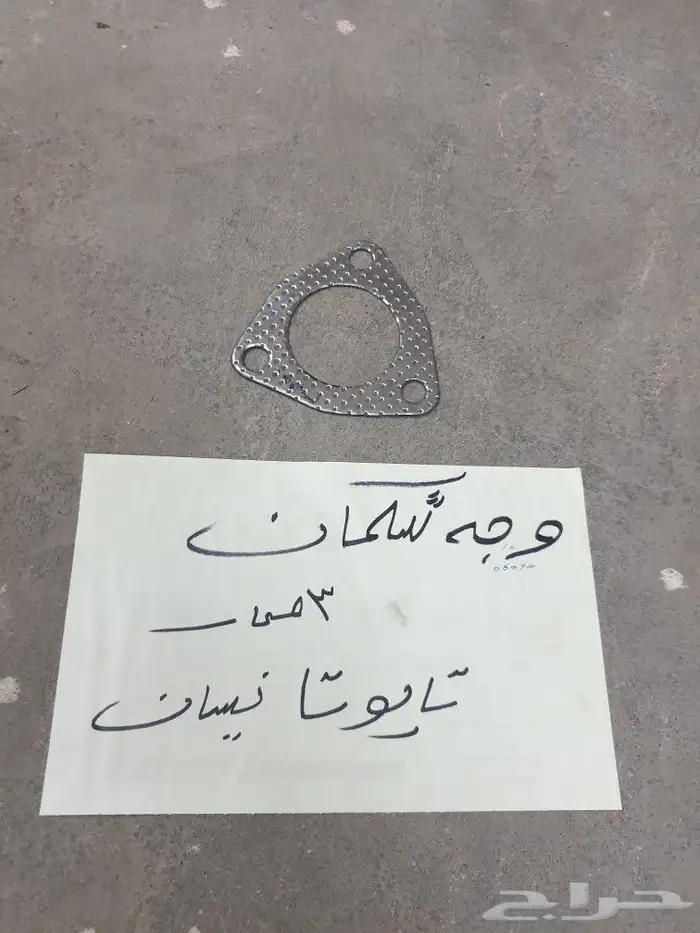 وجه شكمان
٣ صمار
تايوتا نيسان
حراج